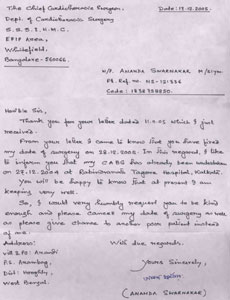 The Chief Cardiothoracic Surgeon,
Date: 17.12.2005.
Dept. of Cardiothoracic Surgery
S.S.S.I.H.M.S.
EPIP Area,
Whitefield,
Bangalore - 560066
M/P. ANANDA SWARNAKAR M/51yrs
Pt. Ref. no. HS-121336
Code:
Hon'ble Sir,
Thank you for your letter dated 11.4.05 which I just
received.
From your letter I came to know that you have fixed
my date of surgery on 28.12.2005. In this regard, I like
to inform you that my CABG has already been undertaken
on 27.12.2004 at Rabindranath Tagore Hospital, Kolkata.
You will be happy to know that at present I am
keeping very well.
So, I would very humbly request you to be kind
enough and please cancel my date of surgery as well
as please give chance to another poor patient instead
of me.
Address:
With due regards,
Vill & P.O:
P.S. Arambag,
Yours Sincerely,
Dist: Hooghly,
West Bengal.
(ANANDA SWARNAKAR)